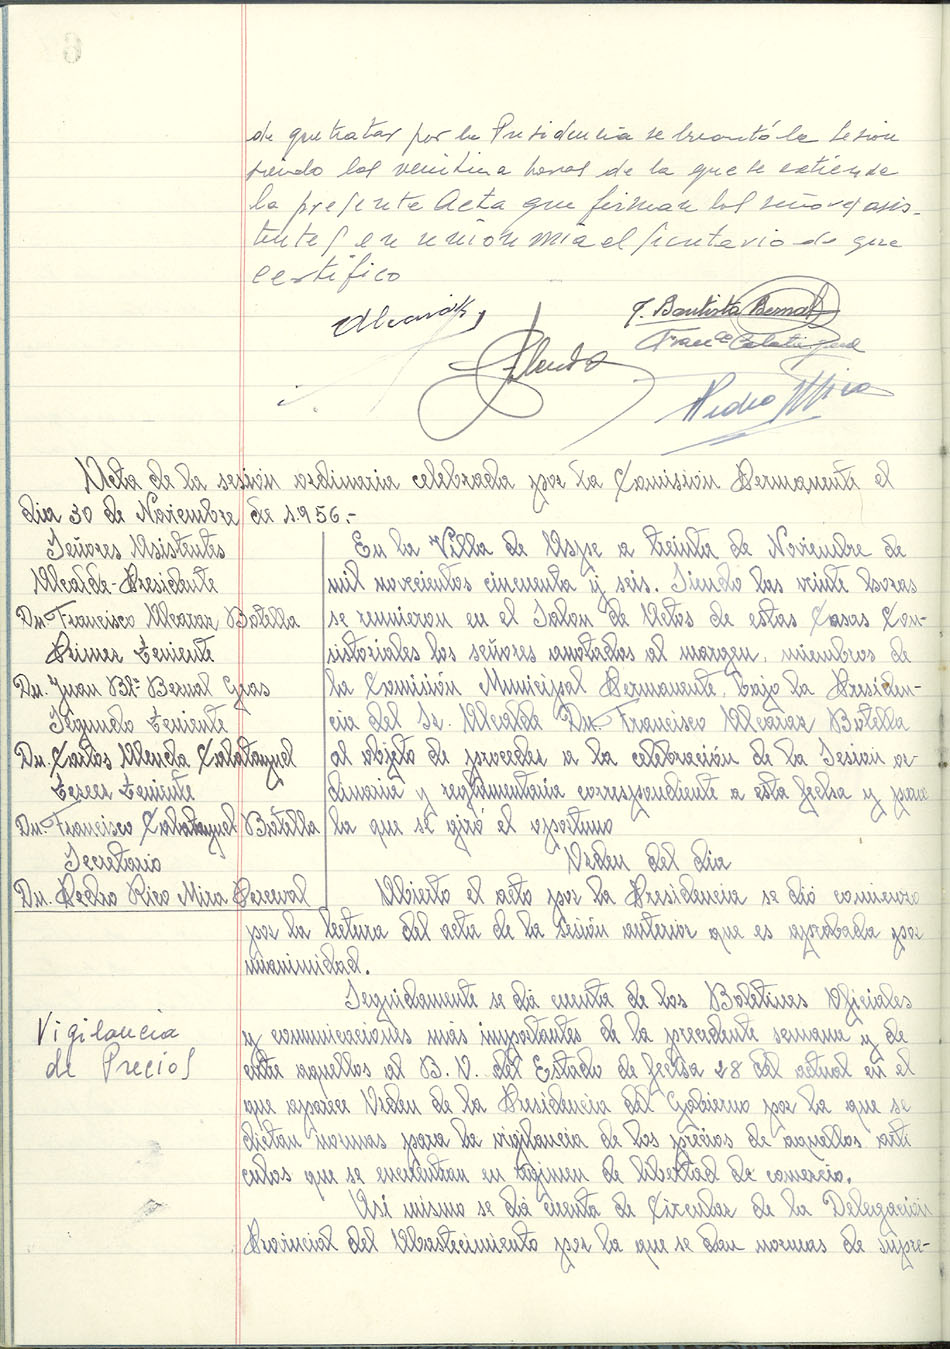 de que tratar por la Presidencia se levantó la sesion
siendo las veintiuna horas de la que se extiende
la presente Acta que firman los señores asis-
tentes en unión mia el Secretario de que
certifico
J. Bautista Bernal
Pedro Mira
Acta de la sesión ordinaria celebrada por la Comisión Permanente el
dia 30 de Noviembre de 1.956.-
Señores Asistentes
Alcalde-Presidente
Dn. Francisco Alcaraz Botella
Primer Teniente
Dn. Juan Bta. Bernal Gras
Segundo Teniente
Dn. Carlos Alenda Calatayud
Tercer Teniente
Dn. Francisco Calatayud Botella
Secretario
Dn. Pedro Rico Mira Perceval
En la Villa de Aspe a treinta de Noviembre de
mil novecientos cincuenta y seis. Siendo las veinte horas
se reunieron en el Salon de Actos de estas Casas Con-
sistoriales los señores anotados al margen, miembros de
la Comisión Municipal Permanente, bajo la Presiden-
cia del Sr. Alcalde Dn. Francisco Alcaraz Botella
al objeto de proceder a la celebración de la Sesión or-
dinaria y reglamentaria correspondiente a esta fecha y para
la que se giró el oportuno
Orden del dia
Abierto el acto por la Presidencia se dió comienzo
por la lectura del acta de la Sesión anterior que es aprobada por
unanimidad.
Vigilancia
de Precios
Seguidamente se dá cuenta de los Boletines Oficiales
y comunicaciones más importantes de la precedente semana y de
entre aquellos al B. O. del Estado de fecha 28 del actual en el
que aparece Orden de la Presidencia del Gobierno por la que se
dictan normas para la vigilancia de los precios de aquellos artí
culos que se encuentran en régimen de libertad de comercio.
Asi mismo se dá cuenta de Circular de la Delegación
Provincial del Abastecimiento por la que se dan normas de supre-